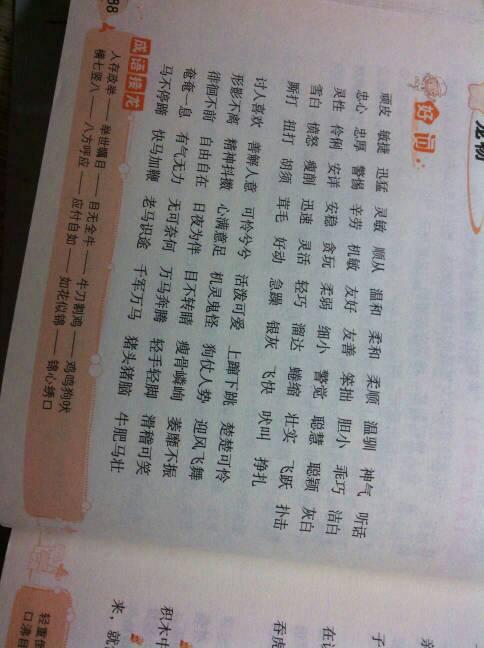 宠物
好词
顽皮 敏捷 迅猛 灵敏 顺从 温和 柔和 柔顺 温驯 神气 听话
忠心 忠厚 警惕 辛劳 机敏 友好 友善 笨拙 胆小 乖巧 洁白
灵性 伶俐 安详 安稳 贪玩 柔弱 细小 警觉 聪慧 聪颖 灰白
雪白 愤怒 瘦削 迅速 灵活 轻巧 溜达 蜷缩 壮实 飞跃 扑击
厮打 扭打 胡须 茸毛 好动 急躁 银灰 飞快 吠叫 挣扎
讨人喜欢 善解人意 可怜兮兮 活泼可爱 上蹿下跳 楚楚可怜
形影不离 精神抖擞 心满意足 机灵鬼怪 狗仗人势 迎风飞舞
徘徊不前 自由自在 日夜为伴 目不转睛 瘦骨嶙峋 萎靡不振
奄奄一息 有气无力 无可奈何 万马奔腾 轻手轻脚 滑稽可笑
马不停蹄 快马加鞭 老马识途 千军万马 猪头猪脑 牛肥马壮
成语接龙
人存政举——举世瞩目——目无全牛——牛刀割鸡——鸡鸣狗吠
横七竖八——八方呼应——应付自如——如花似锦——锦心绣口
88
子
在
吞虎
积木中
来，就
轻重
口沸目